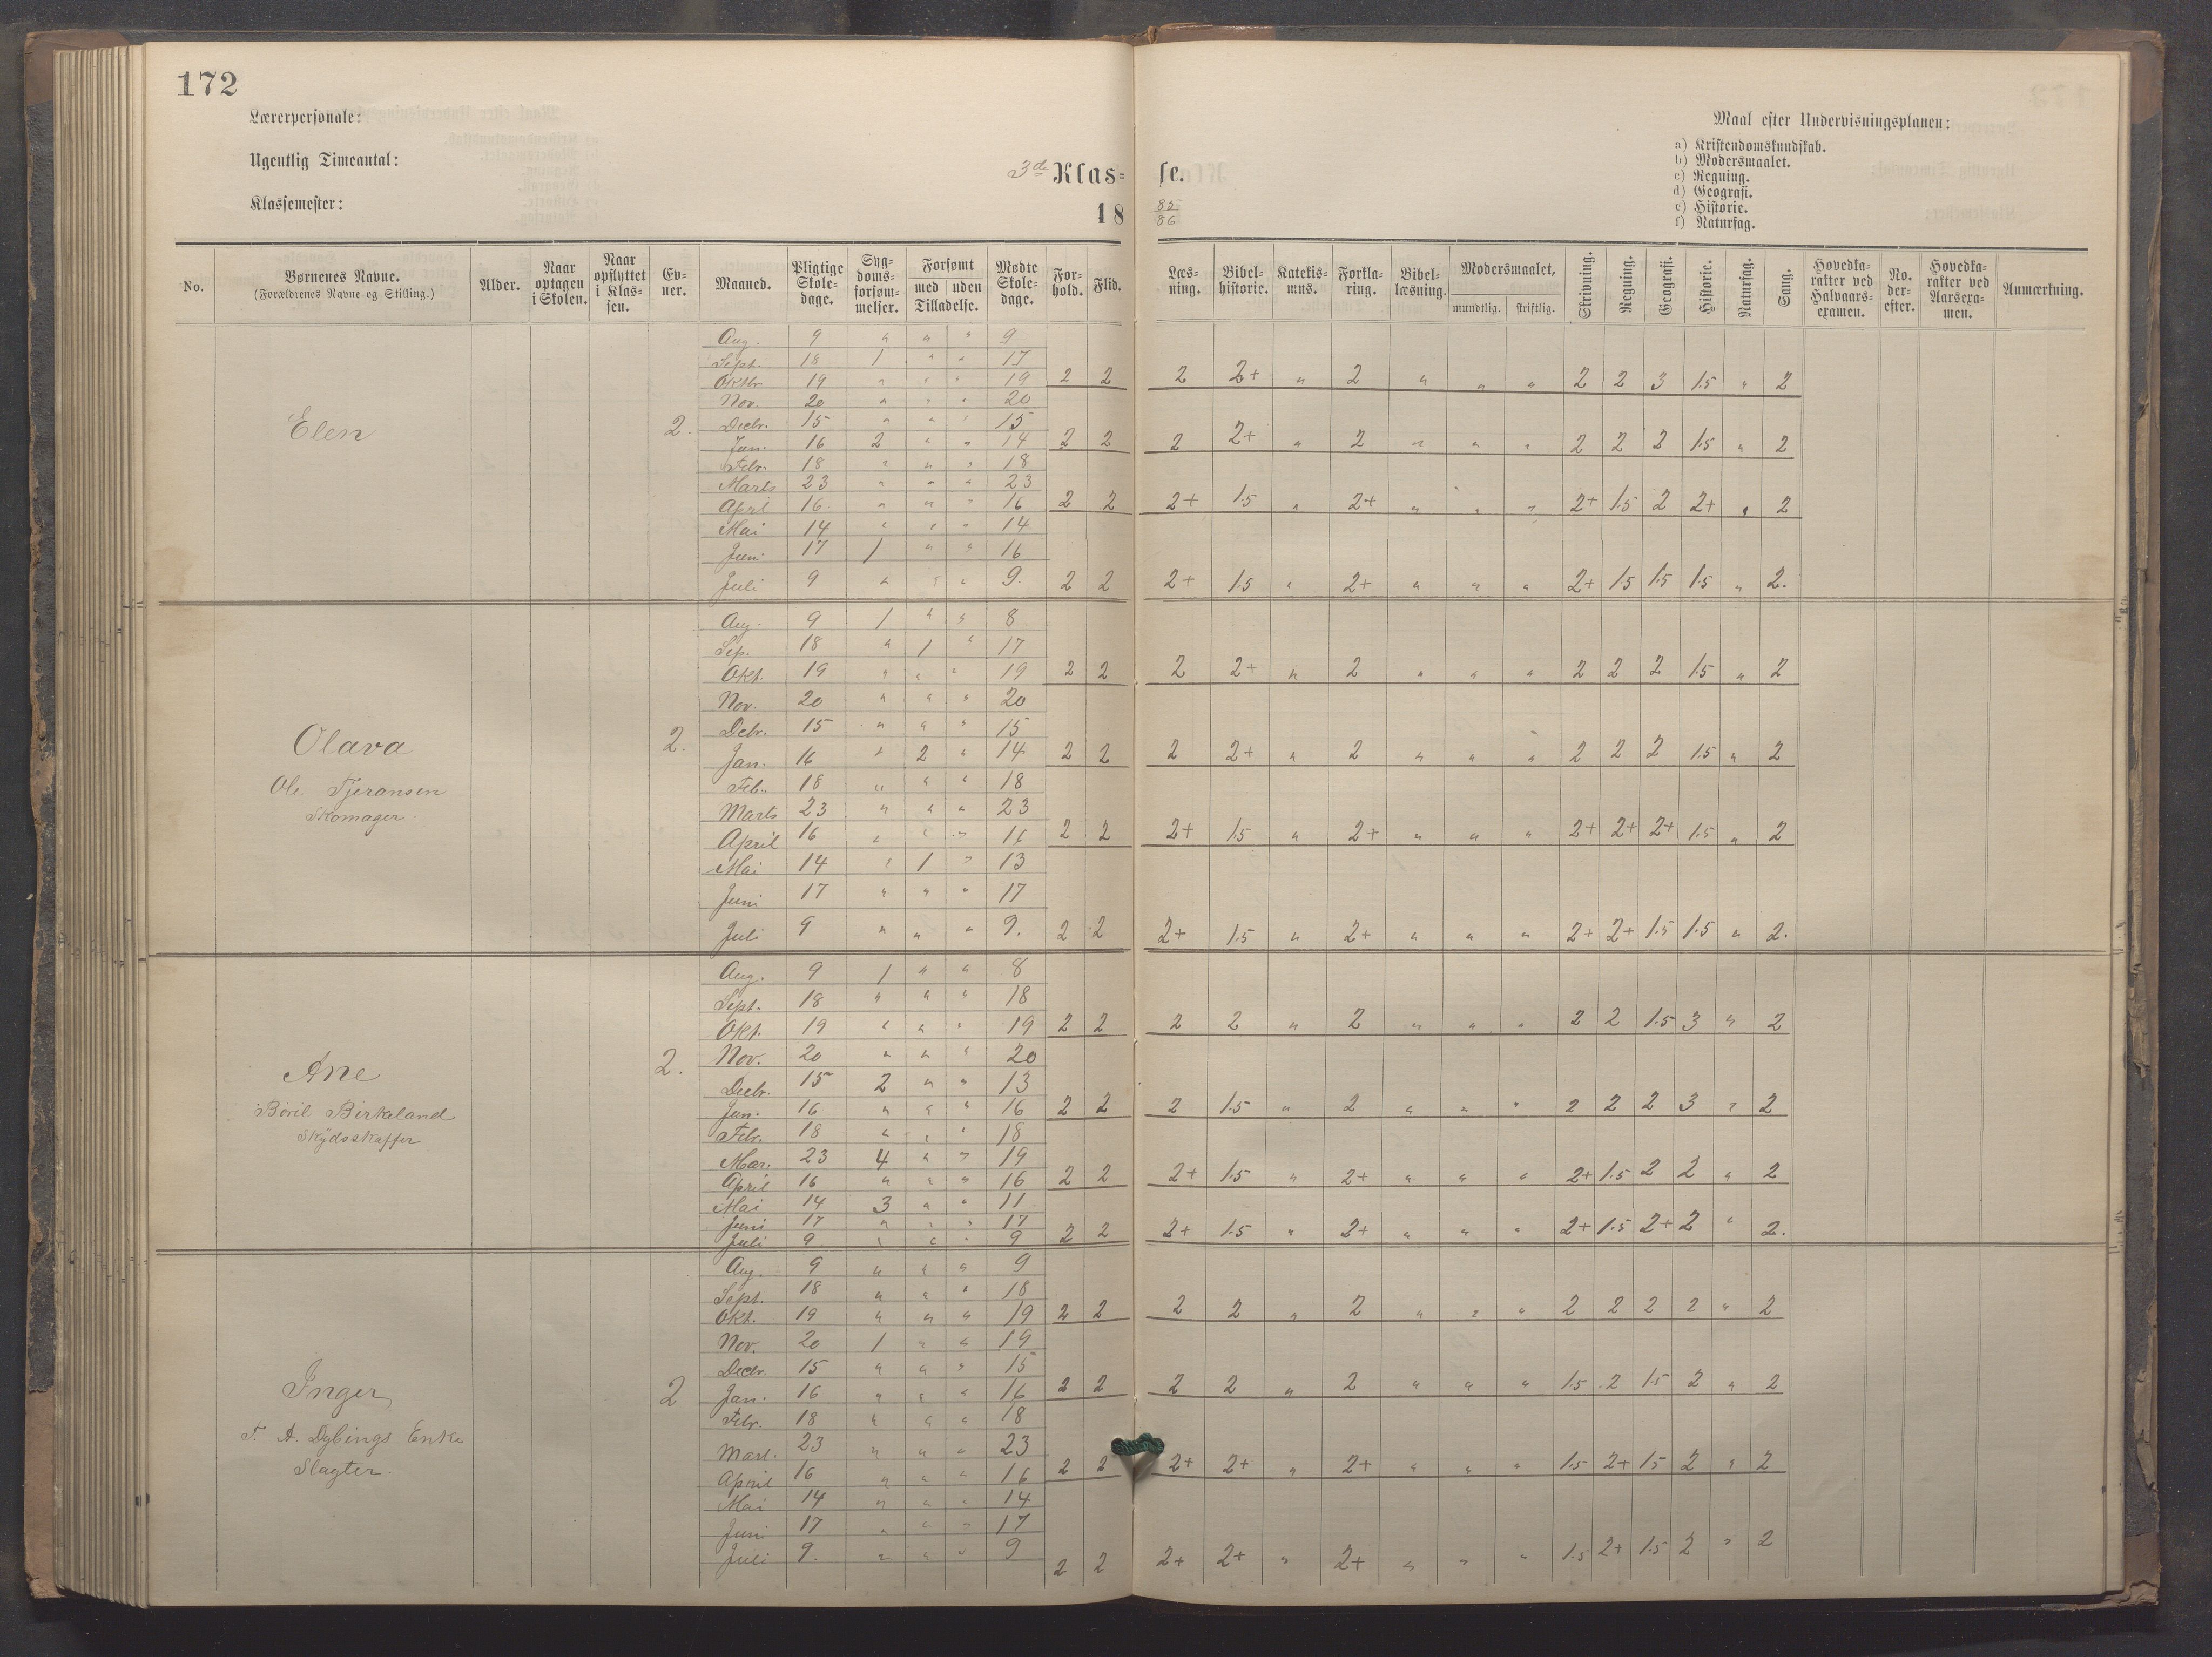 172
Lærerpersonale:
Ugentlig Timeantal:
Klassemester:
3de Klas= se.
18 85/86
Maal efter Undervisningsplanen:
a) Kristendomskundskab.
b) Modersmaalet.
c) Regning.
d) Geografi.
e) Historie.
f) Naturfag.
No. Børnenes Navne. (Forældrenes Navne og Stilling.) Alder. Naar optagen i Skolen. Naar opflyttet i Klassen. Evner. Maaned. Pligtige Skoledage. Sygdomsforsømmelser. Forsømt med uden Tilladelse. Mødte Skoledage. Forhold. Flid. Læsning. Bibelhistorie. Katekismus. Forklaring. Bibellæsning. Modersmaalet, mundtlig. skriftlig. Skrivning. Regning. Geografi. Historie. Naturfag. Sang. Hovedkarakter ved Halvaarsexamen. No. derefter. Hovedkarakter ved Aarsexamen. Anmærkning.
Elen 2.
Aug. 9 " " " 9
Sept. 18 1 " " 17
Oktbr 19 " " " 19 2 2 2 2+ " 2 " " " 2 2 3 1.5 " 2
Nov. 20 " " " 20
Decbr. 15 " " " 15
Jan. 16 2 " " 14 2 2 2 2+ " 2 " " " 2 2 2 1.5 " 2
Febr. 18 " " " 18
Marts 23 " " " 23
April 16 " " " 16 2 2 2+ 1.5 " 2+ " " " 2+ 1.5 2 2+ " 2
Mai 14 " " " 14
Jun. 17 1 " " 16
Juli 9 " " " 9. 2 2 2+ 1.5 " 2+ " " " 2+ 1.5 1.5 1.5 " 2.
Olava 2.
Ole Tjeransen
Skomager.
Aug. 9 1 " " 8
Sep. 18 " 1 " 17
Okt. 19 " " " 19 2 2 2 2+ " 2 " " " 2 2 2 1.5 " 2
Nov. 20 " " " 20
Debr. 15 " " " 15
Jan. 16 " 2 " 14 2 2 2 2+ " 2 " " " 2 2 2 1.5 " 2
Feb. 18 " " " 18
Marts 23 " " " 23
April 16 " " " 16 2 2 2+ 1.5 " 2+ " " " 2+ 2+ 2+ 1.5 " 2
Mai 14 " 1 " 13
Juni 17 " " " 17
Juli 9 " " " 9. 2 2 2+ 1.5 " 2+ " " " 2+ 2+ 1.5 1.5 " 2.
Ane 2.
Birkeland
Skydsskaffer
Aug. 9 1 " " 8
Sept. 18 " " " 18
Okt. 19 " " " 19 2 2 2 2 " 2 " " " 2 2 1.5 3 " 2
Nov. 20 " " " 20
Decbr. 15 2 " " 13
Jan. 16 " " " 16 2 2 2 1.5 " 2 " " " 2 2 2 3 " 2
Febr. 18 " " " 18
Mar. 23 4 " " 19
April 16 " " " 16 2 2 2+ 1.5 " 2+ " " " 2+ 1.5 2 2 " 2
Mai 14 3 " " 11
Juni 17 " " " 17
Juli 9 " " " 9 2 2 2+ 1.5 " 2+ " " " 2+ 1.5 2+ 2 " 2.
Inger 2
T. A. Dybings Enke
Slagter.
Aug. 9 " " " 9
Sept. 18 " " " 18
Okt. 19 " " " 19 2 2 2 2 " 2 " " " 2 2 2 2 " 2
Nov. 20 1 " " 19
Decbr. 15 " " " 15
Jan. 16 " " " 16 2 2 2 2 " 2 " " " 1.5 2 1.5 2 " 2
Febr. 18 " " " 18
Mart. 23 " " " 23
April 16 " " " 16 2 2 2+ 2+ " 2+ " " " 1.5 2+ 1.5 2 " 2
Mai 14 " " " 14
Juni 17 " " " 17
Juli 9. " " " 9 2 2 2+ 2+ " 2+ " " " 1.5 2+ 1.5 2 " 2